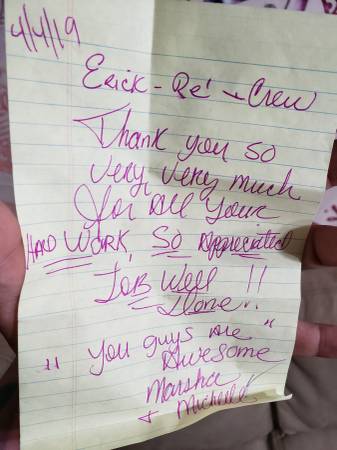 4/4/19
Erick - Re' + Crew
Thank you so
very, very much
for all your
HARD WORK, So Appreciated
Job Well !!
Done..
" You guys are "
Awesome
Marsha
+ Michelle